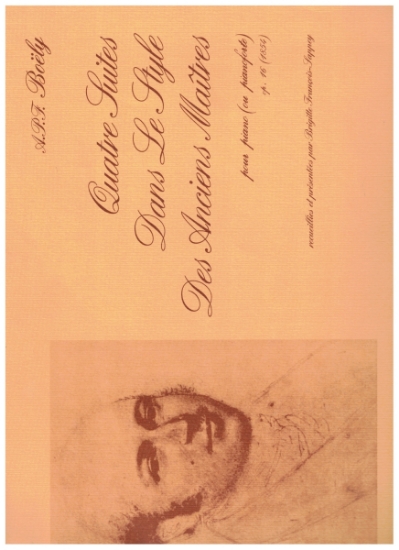 A.P.F. Boëly
Quatre Suites
Dans Le Style
Des Anciens Maîtres
pour piano (ou pianoforte)
op. 16 (1854)
recueillies et présentées par Brigitte François-Sappey